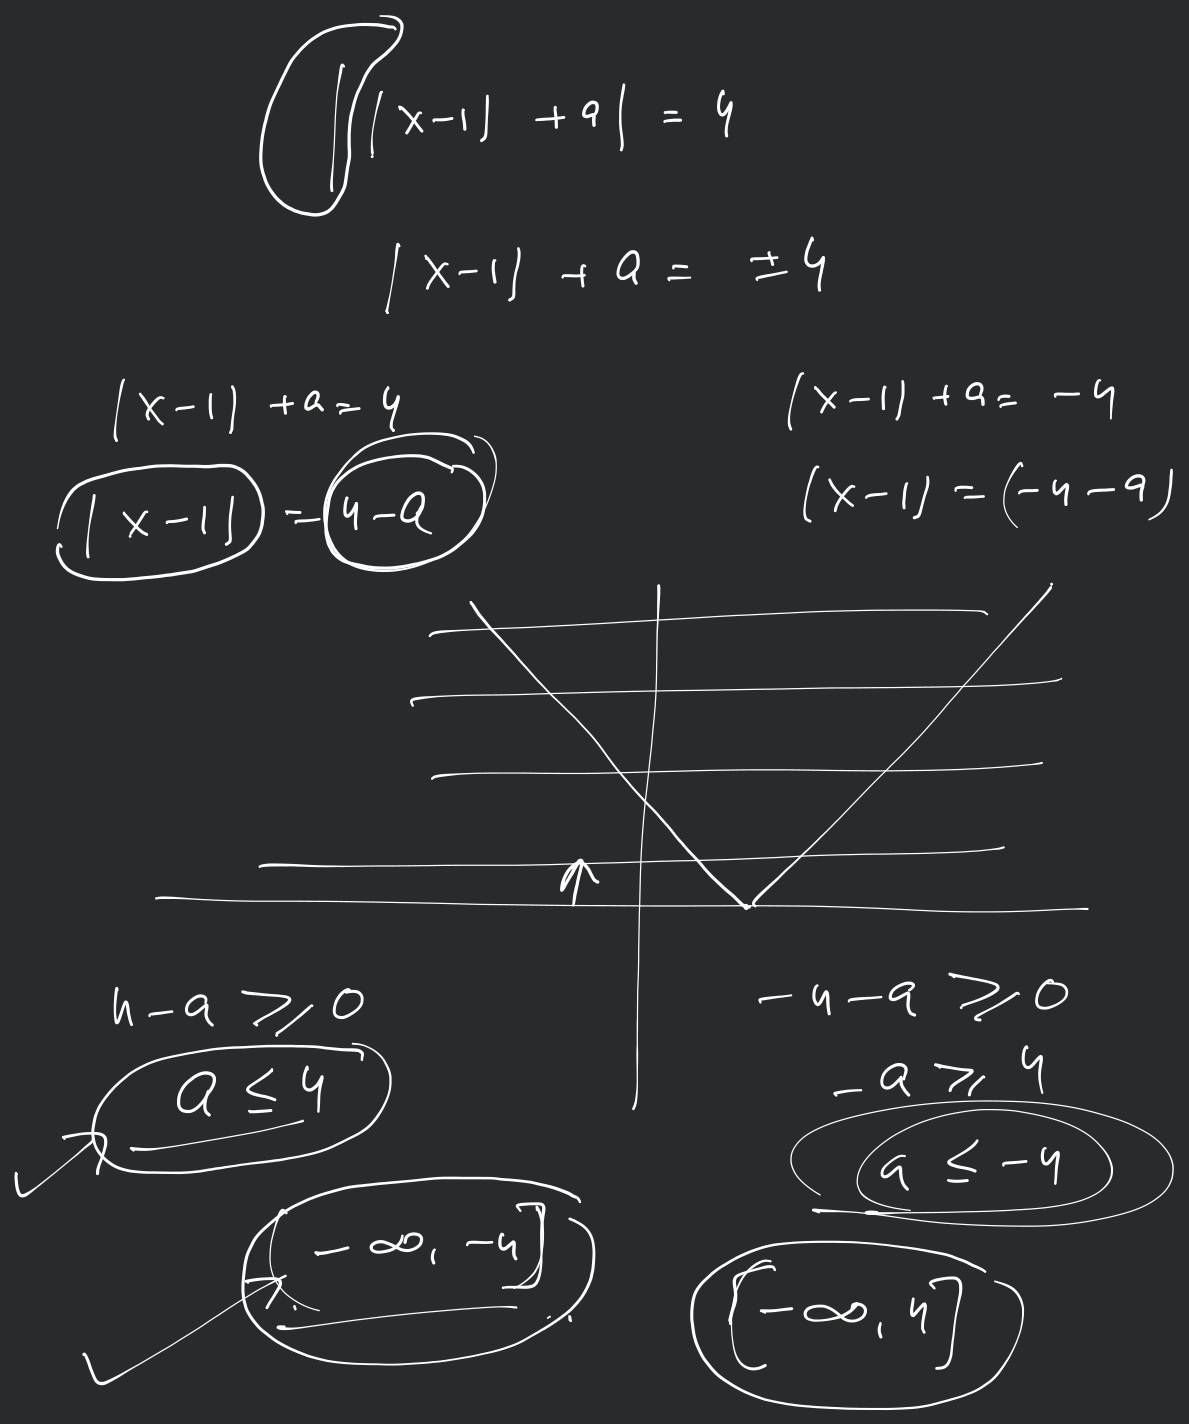 ||x-1| + a| = 4
|x-1| + a = ±4
|x-1| + a = 4
|x-1| = 4-a
(x-1) + a = -4
(x-1) = (-4-a)
4-a ≥ 0
a ≤ 4
-4-a ≥ 0
-a ≥ 4
a ≤ -4
(-∞, -4]
[-∞, 4]